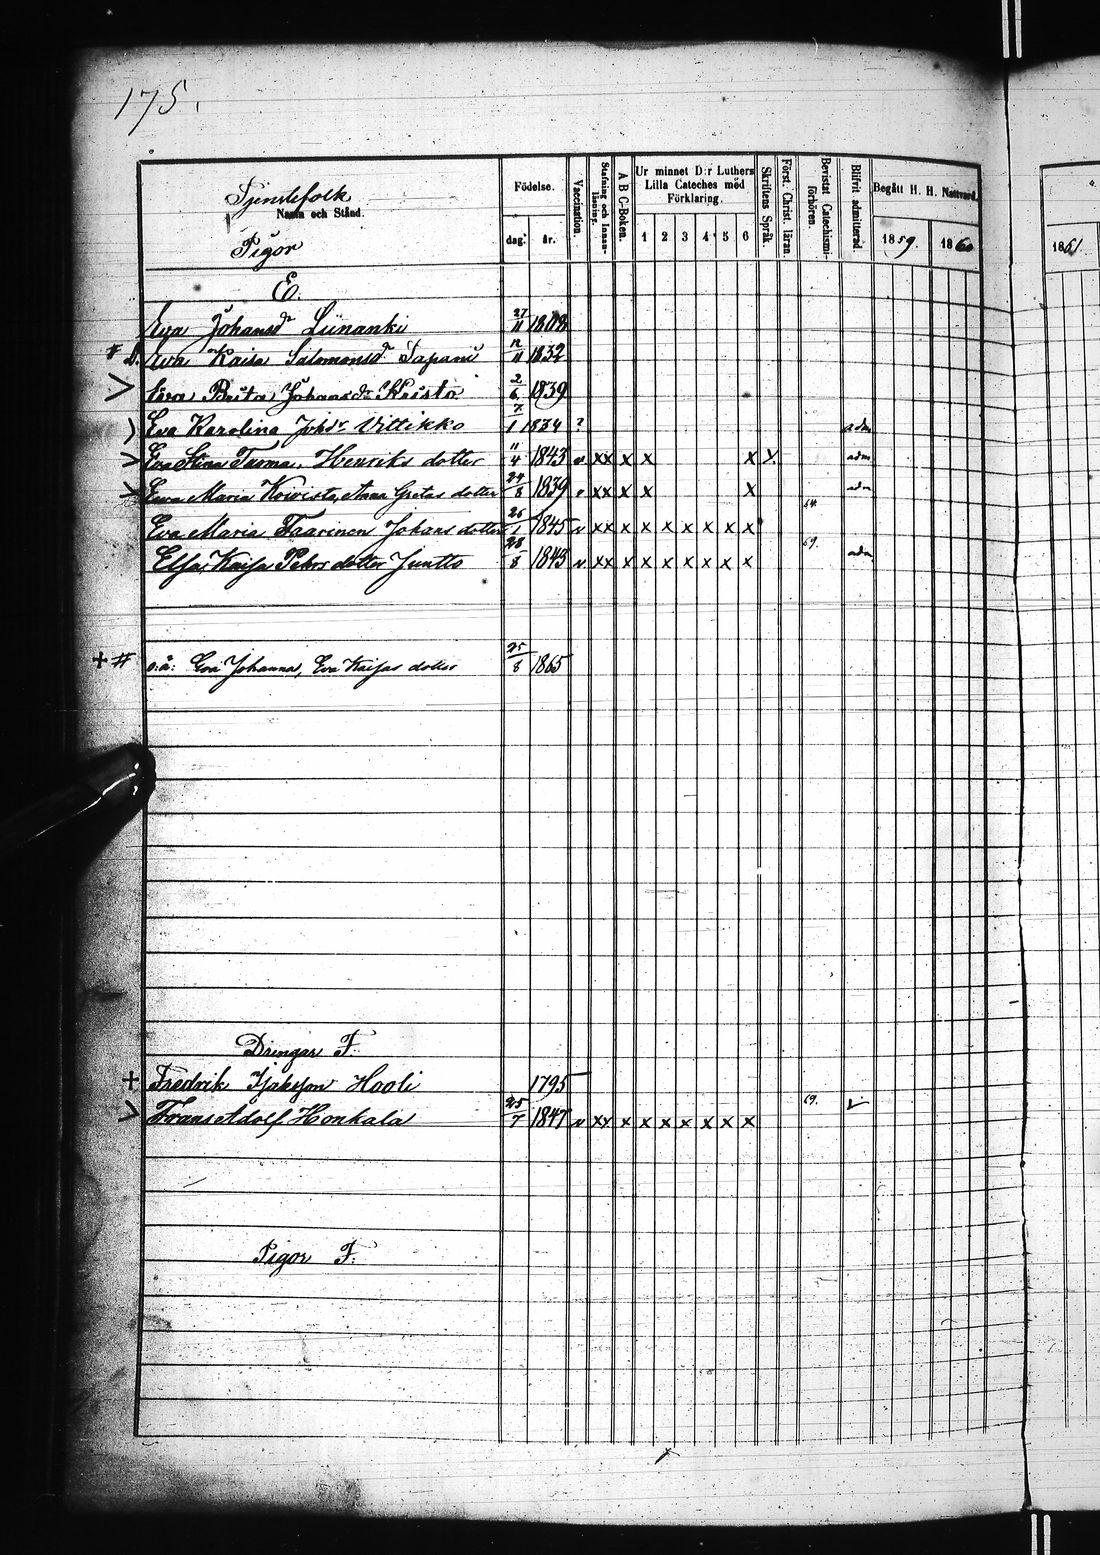 175.
Tjenstefolk
Namn och Stånd.
Pigor
Födelse.
dag. år.
Vaccination.
Stafning och Innan-läsning.
A B C-Boken.
Ur minnet D:r Luthers Lilla Cateches med Förklaring.
1 2 3 4 5 6
Skriftens Språk.
Först. Christ. läran.
Bevistat Catechismi-förhören.
Blifvit admitterad.
Begått H. H. Nattvard.
1859. 1860
1861.
E.
Eva Johansdr Liinanki 27/11 1808
# Eva Kaisa Salomonsdr Sapani 12/11 1832
V Eva Brita Johansdr Kristo 2/6 1839
Eva Karolina Johsdr Vittikko 7/1 1834 ? adm
V Eva Stina Tuoma, Henriks dotter 11/4 1843 v xx x x x x adm
Ewa Maria Koivisto, Anna Gretas dotter 24/8 1839 v xx x x x adm
Eva Maria Taarinen Johans dotter 26/1 1845 v xx x x x x x x x 64.
Elsa Kaisa Pehrs dotter Juntto 28/8 1843 v xx x x x x x x x 69. adm
+ # o.ä: Eva Johanna, Eva Kaijsas dotter 25/8 1865
Drengar F.
+ Fredrik Isaksson Hooli 1795
V Frans Adolf Honkala 25/7 1847 v xx x x x x x x x 69. v
Pigor F.